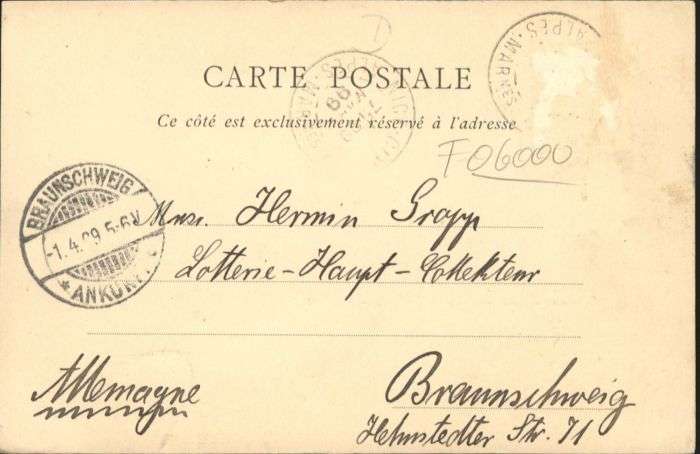 CARTE POSTALE
Ce côté est exclusivement réservé à l'adresse
ALPES-MARMES
99
F06000
BRAUNSCHWEIG
-1.4.99 5-6N
* ANKUNFT
Hermin Gropp
Lotterie-Haupt-Collekteur
Allemagne
Braunschweig
Helmstedter Str. 71